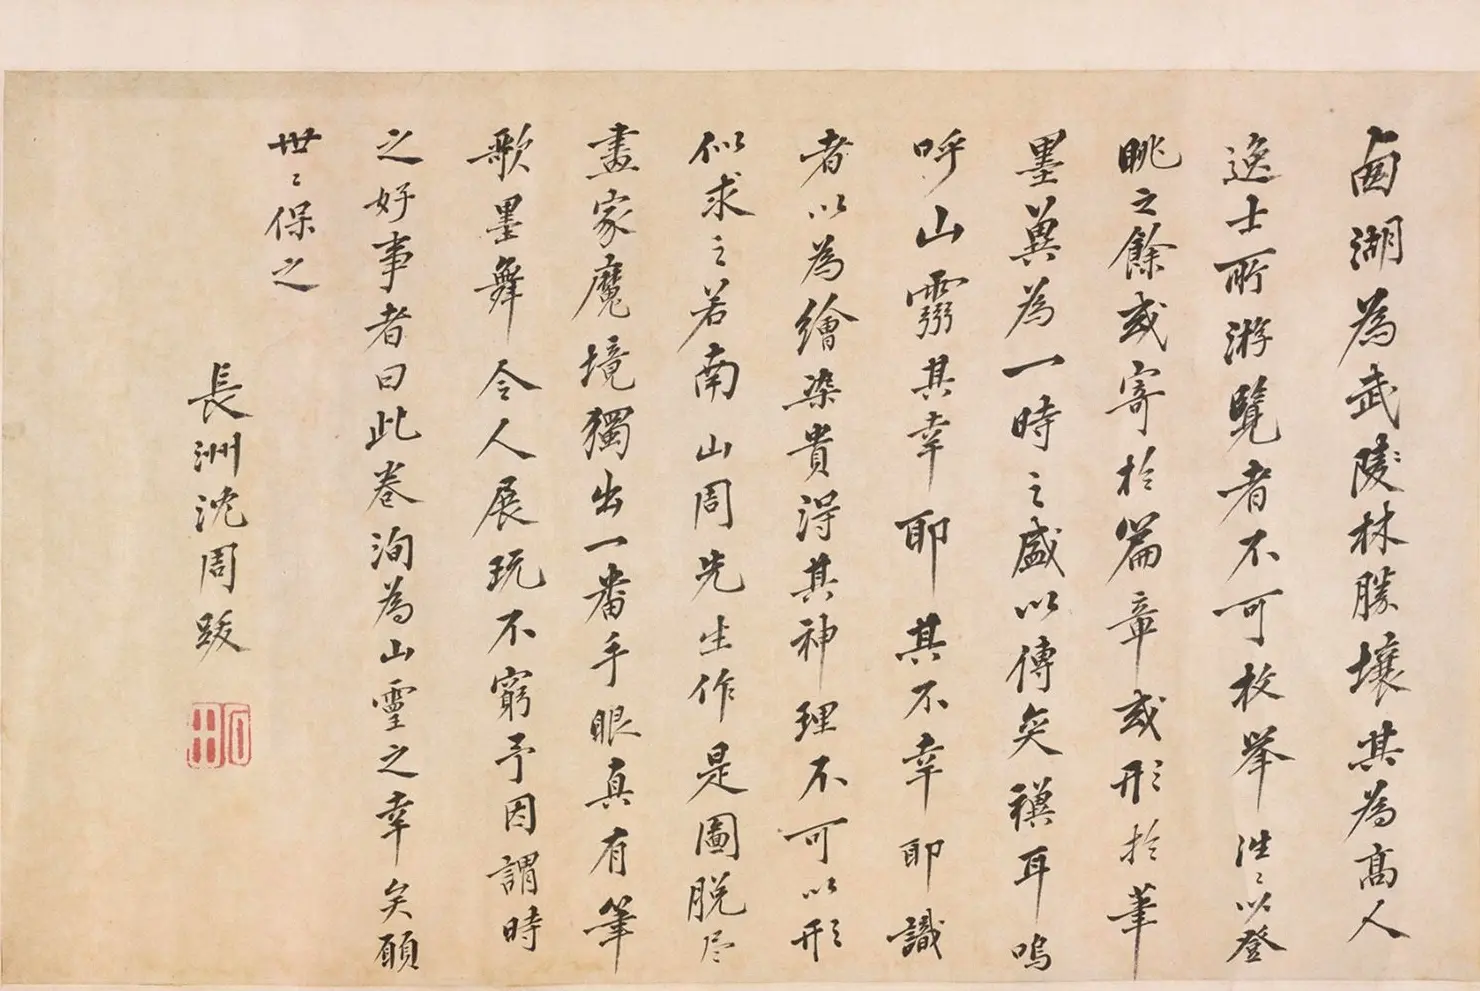 西湖為武陵林勝壤其為髙人
逸士所游覽者不可枚舉泩〻以登
眺之餘或寄於篇章或形於筆
墨兾為一時之盛以傳奕禩耳嗚
呼山靈其幸耶其不幸耶識
者以為繪染貴得其神理不可以形
似求之若南山周先生作是圖脱尽
畫家魔境獨出一番手眼真有筆
歌墨舞令人展玩不窮予因謂時
之好事者曰此卷洵為山靈之幸矣願
世〻保之
長洲沈周跋